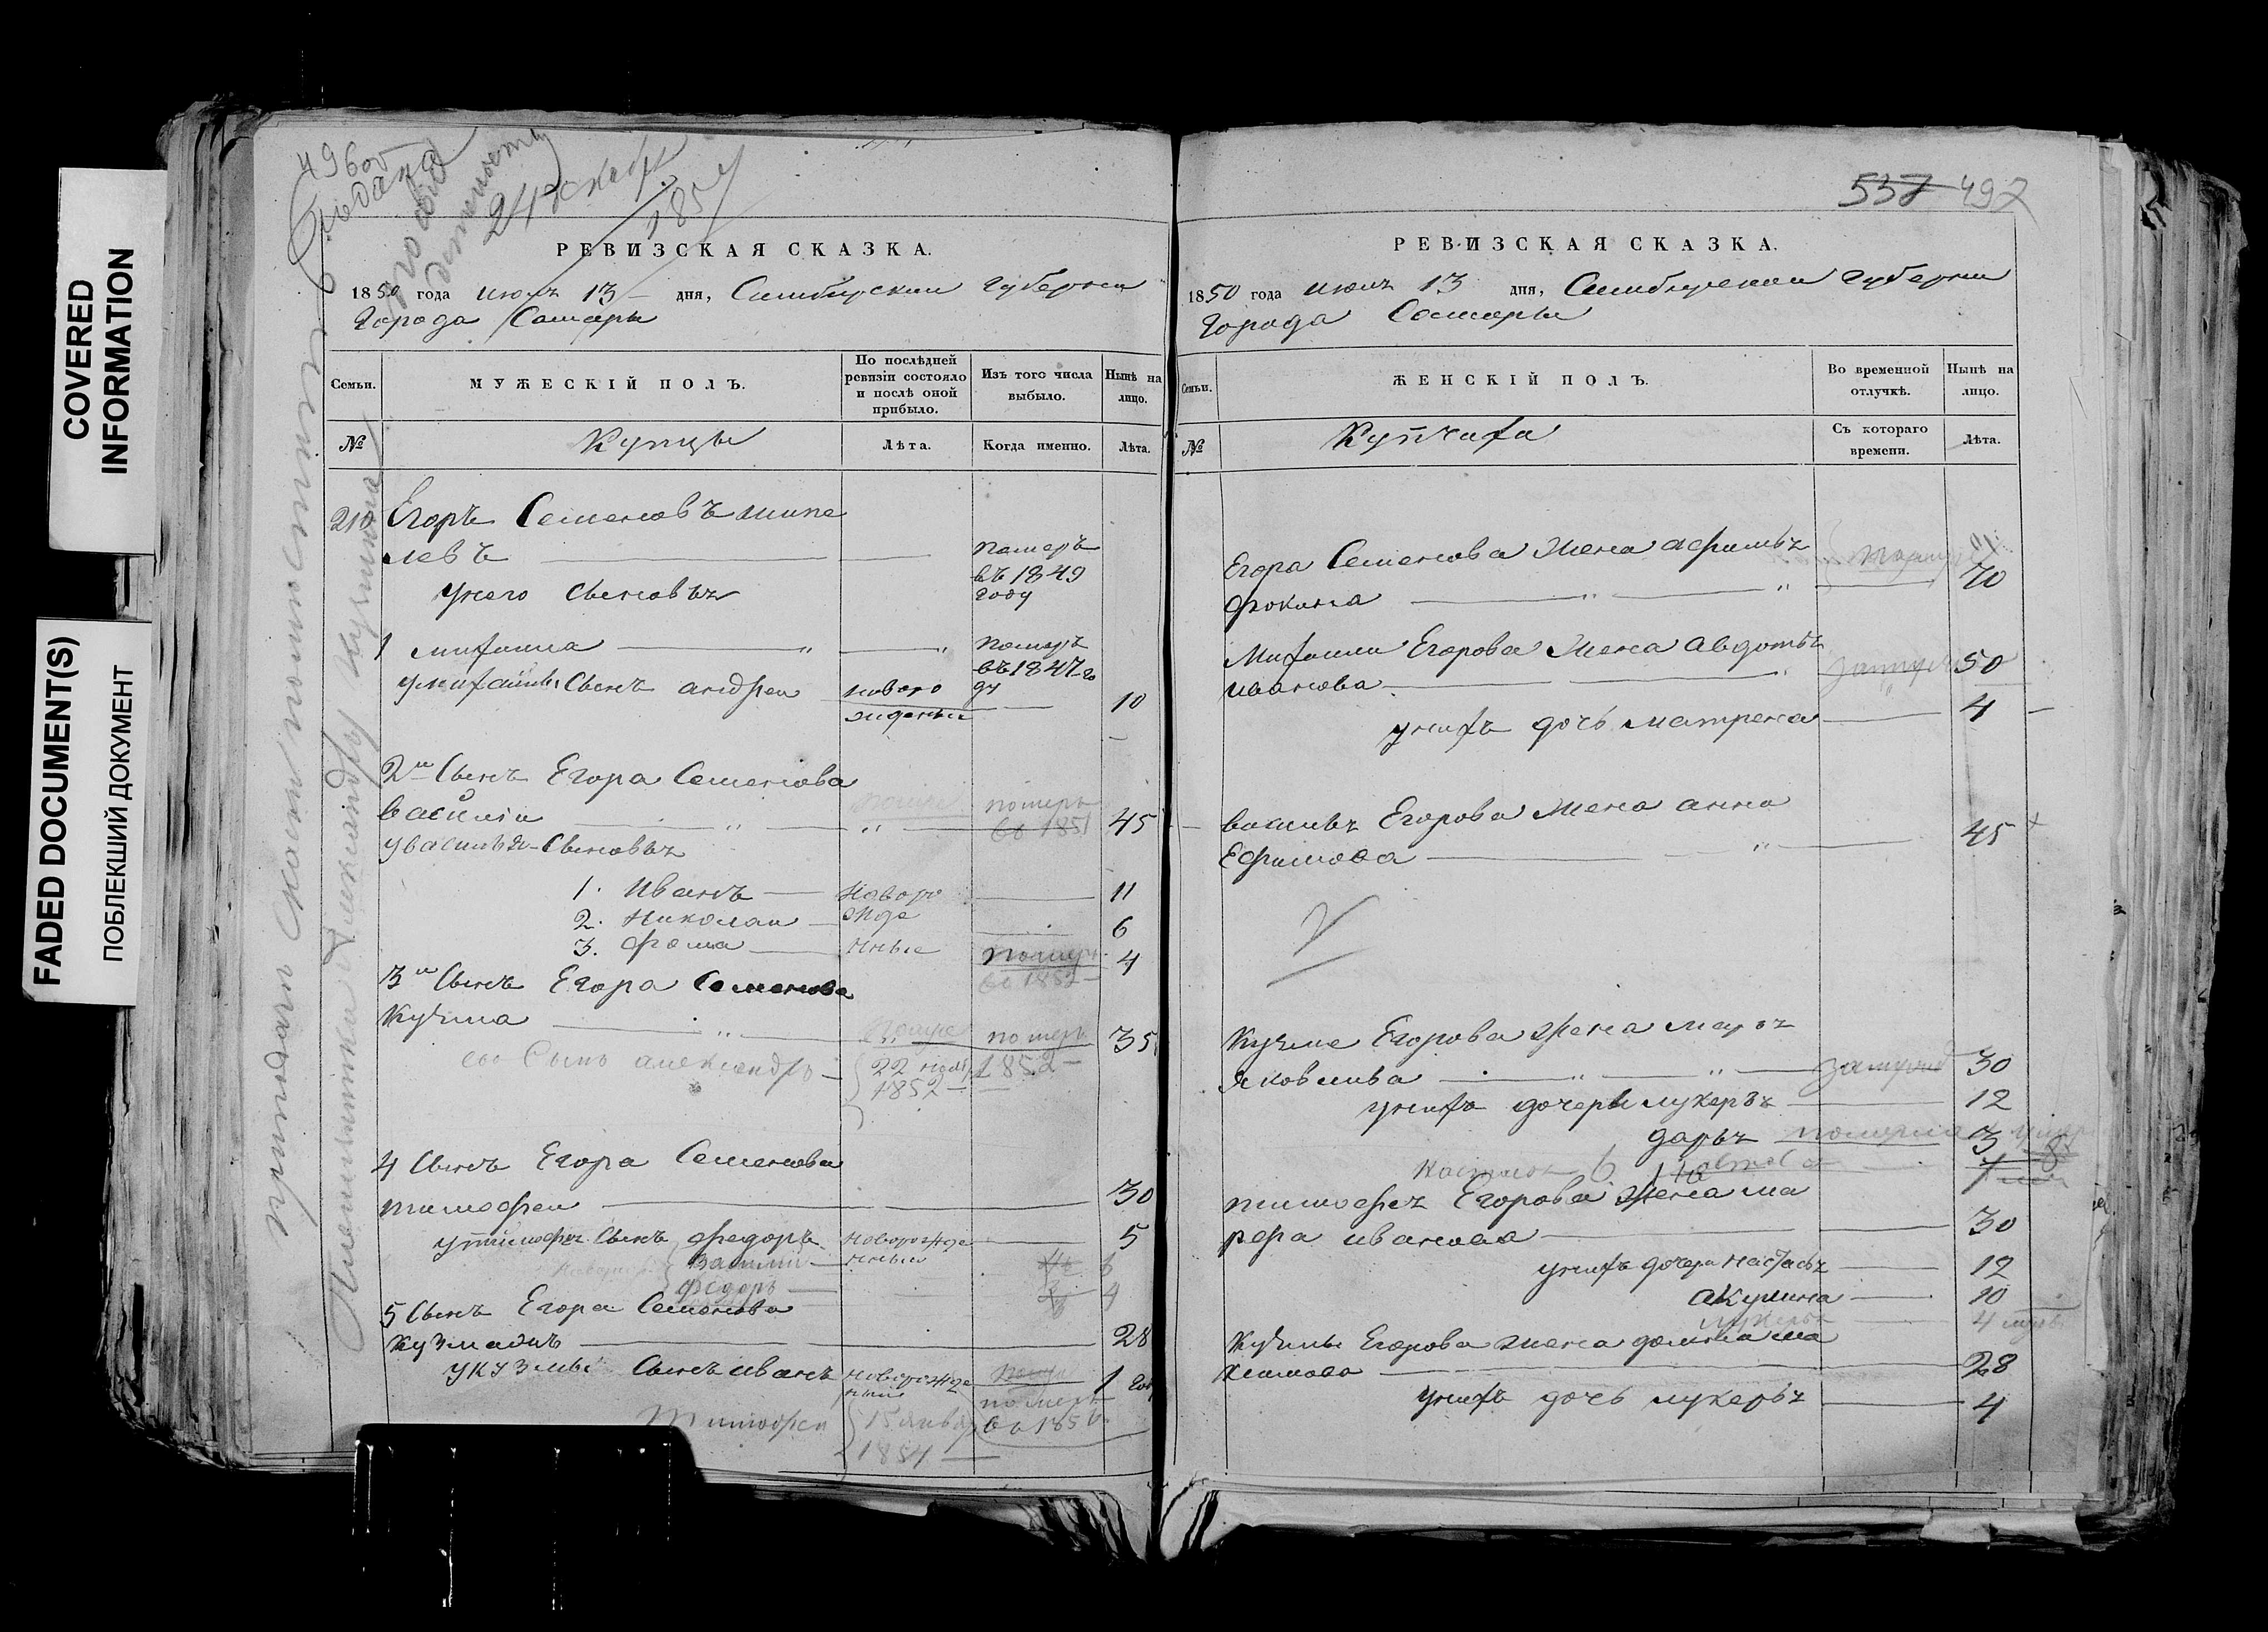 COVERED
INFORMATION
FADED DOCUMENT(S)
ПОБЛЕКШИЙ ДОКУМЕНТ
496 об
Подана
24 декабря
1857
РЕВИЗСКАЯ СКАЗКА.
1850 года июля 13 дня, Симбирской Губернии
Города Самары
Семьи.
МУЖЕСКІЙ ПОЛЪ.
По послѣдней ревизіи состояло и послѣ оной прибыло.
Изъ того числа выбыло.
Нынѣ на лицо.
№
Купцы
Лѣта.
Когда именно.
Лѣта.
210 Егоръ Семеновъ шипе
левъ
померъ
въ 1849
году
у него сыновьz
1 михаила
померъ
въ 1847 го
ду
у михаилы Сынъ андреи новоро
жденыи 10
2и Сынъ Егора Семенова
василіи померъ во 1851 45
у василья Сыновьz
1. Иванъ новоро 11
2. Николаи жде 6
3. фома нные померъ во 1852 4
3и Сынъ Егора Семенова
Кузма померъ 1852 35
его Сынъ александръ 22
1852
4 Сынъ Егора Семенова
тимофеи 30
у тимофеz Сынъ федоръ новорожде 5
нныи
Василий 6
Федоръ 4
5 Сынъ Егора Семенова
Кузма 28
у кузмы Сынъ иванъ новорожде 1 год
ныи
померъ
во 185
Тимофеи 15 января
1854
537 492
РЕВИЗСКАЯ СКАЗКА.
1850 года июля 13 дня, Симбирской Губернии
Города Самары
Семьи.
ЖЕНСКІЙ ПОЛЪ.
Во временной отлучкѣ.
Нынѣ на лицо.
№
Купчиха
Съ котораго времени.
Лѣта.
Егора Семенова жена афимьz
фокина 70
Михаили Егорова жена авдотьz
иванова 50
у нихъ дочь матрена 4
васильz Егорова жена анна
Ефимова 45
Кузме Егорова жена марьz
Яковлива замуж 30
у нихъ дочери лукерьz 12
дарьz померла 3
тимофеz Егорова жена ма
рфа иванова 30
у нихъ дочери настасьz 12
акулина 10
Лукерья 4
Кузмы Егорова жена домна ма
ксимова 28
у нихъ дочь лукерьz 4